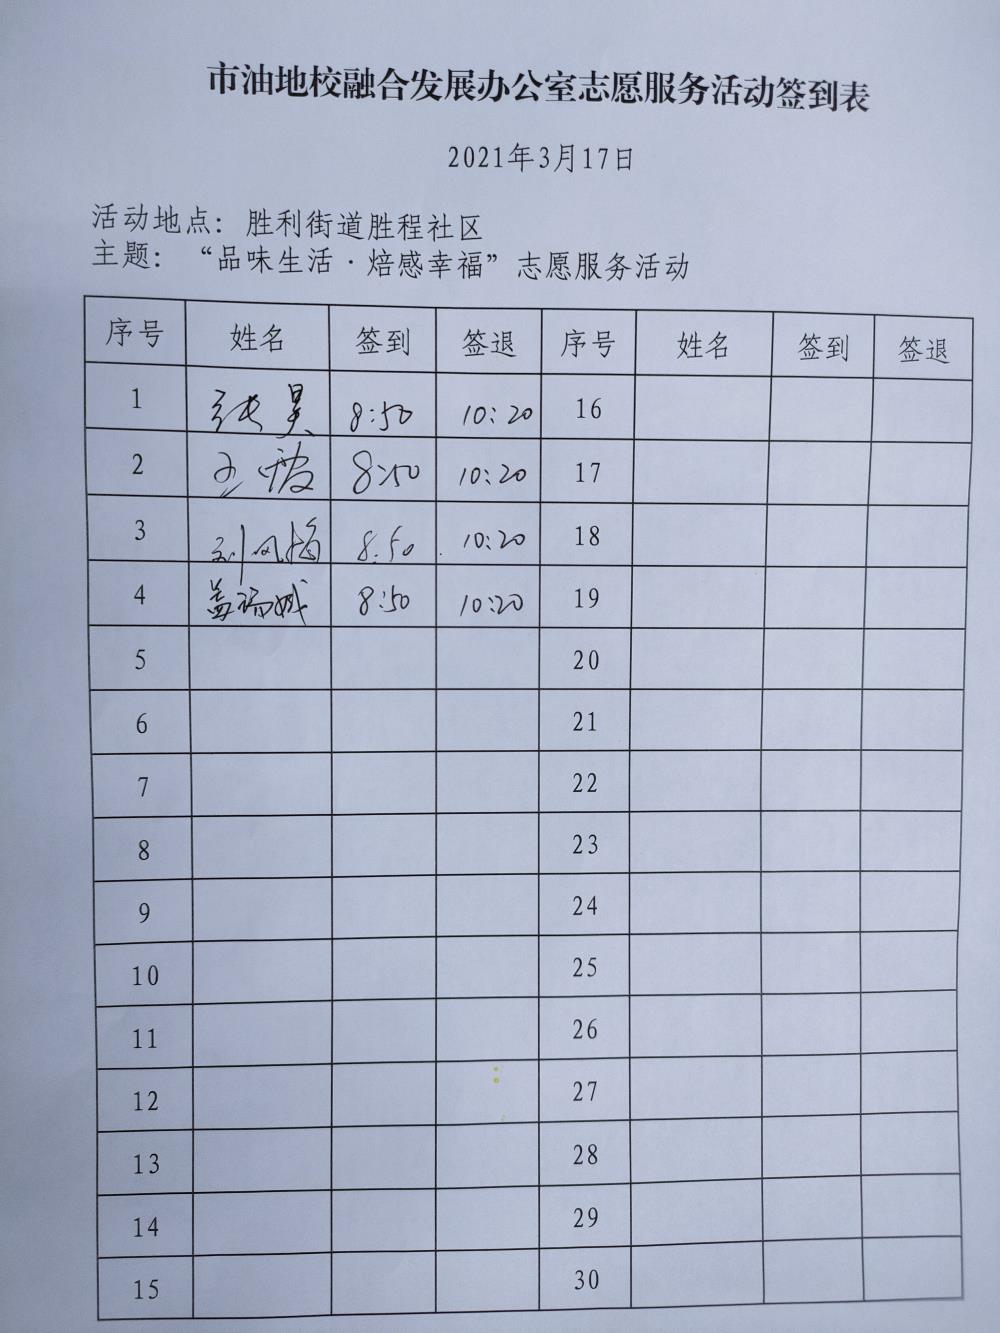 市油地校融合发展办公室志愿服务活动签到表
2021年3月17日
活动地点：胜利街道胜程社区
主题：“品味生活·焙感幸福”志愿服务活动
序号 姓名 签到 签退 序号 姓名 签到 签退
1 张昊 8:50 10:20 16
2 王 8:50 10:20 17
3 刘凤梅 8:50 10:20 18
4 盖瑞娥 8:50 10:20 19
5 20
6 21
7 22
8 23
9 24
10 25
11 26
12 27
13 28
14 29
15 30